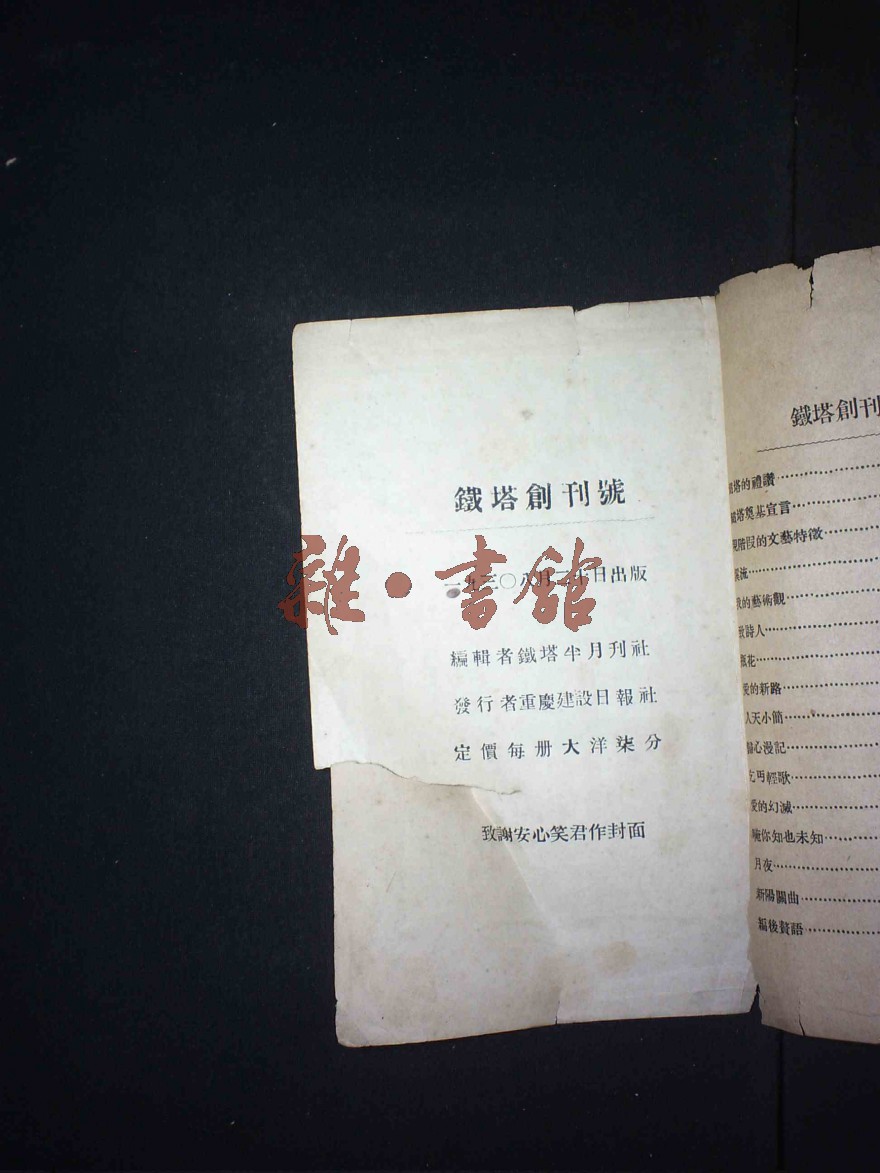 鐵塔創刊號
一九三〇八月二十日出版
編輯者鐵塔半月刊社
發行者重慶建設日報社
定價每册大洋柒分
致謝安心笑君作封面
雜·書館
鐵塔創刊
塔的禮讚
塔奠基宣言
階段的文藝特徵
流
我的藝術觀
致詩人
瓶花
愛的新路
人天小簡
心漫記
乞丐輕歌
愛的幻滅
你知也未知
月夜
新陽關曲
編後贅語